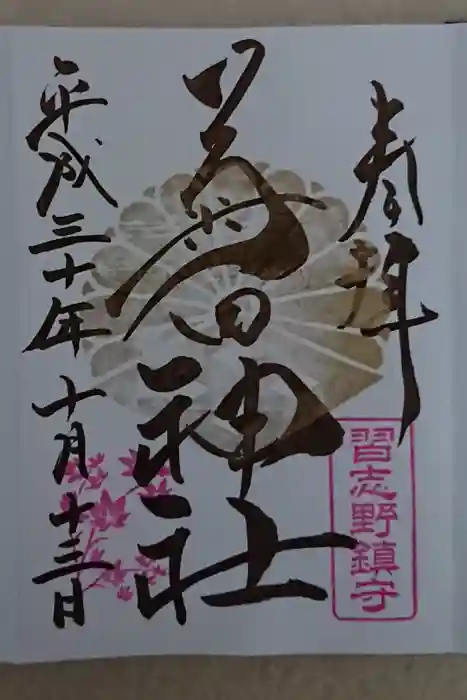 奉拝
習志野鎮守
菊田神社
平成三十年十月十三日